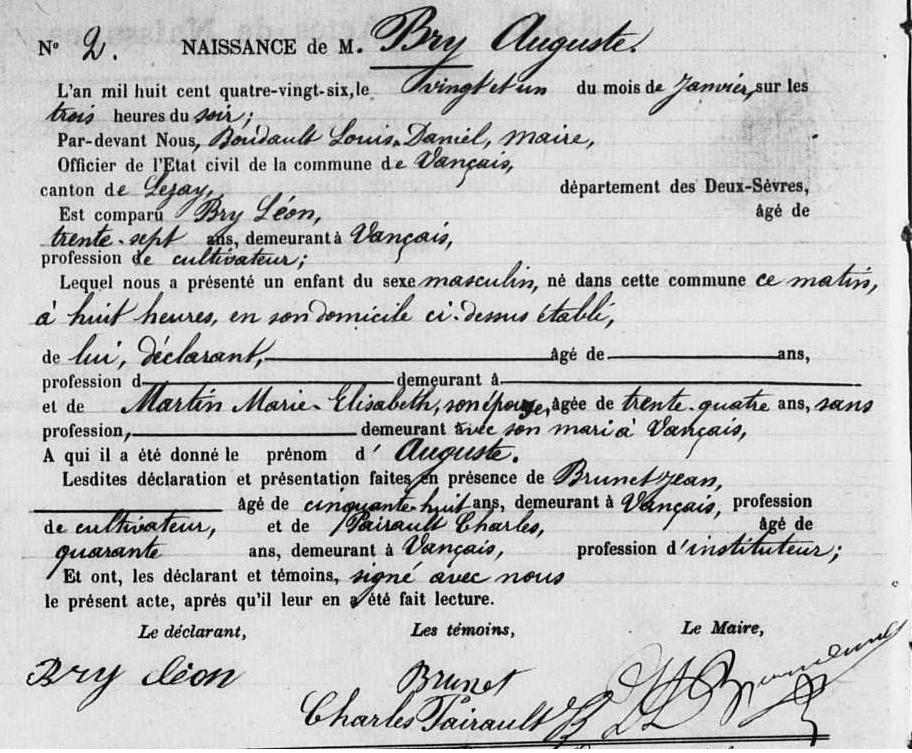 N° 2. NAISSANCE de M. Bry Auguste.
L'an mil huit cent quatre-vingt-six, le vingt et un du mois de Janvier, sur les
trois heures du soir;
Par-devant Nous, Boudault Louis-Daniel, maire,
Officier de l'Etat civil de la commune de Vançais,
canton de Lezay, département des Deux-Sèvres,
Est comparu Bry Léon, âgé de
trente-sept ans, demeurant à Vançais,
profession de cultivateur;
Lequel nous a présenté un enfant du sexe masculin, né dans cette commune ce matin,
à huit heures, en son domicile ci-dessus établi,
de lui, déclarant, âgé de ans,
profession d demeurant à
et de Martin Marie-Elisabeth, son épouse, âgée de trente-quatre ans, sans
profession, demeurant avec son mari à Vançais,
A qui il a été donné le prénom d' Auguste.
Lesdites déclaration et présentation faites en présence de Brunet Jean,
âgé de cinquante-huit ans, demeurant à Vançais, profession
de cultivateur, et de Pairault Charles, âgé de
quarante ans, demeurant à Vançais, profession d'instituteur;
Et ont, les déclarant et témoins, signé avec nous
le présent acte, après qu'il leur en a été fait lecture.
Le déclarant, Les témoins, Le Maire,
Bry Léon Brunet
Charles Pairault